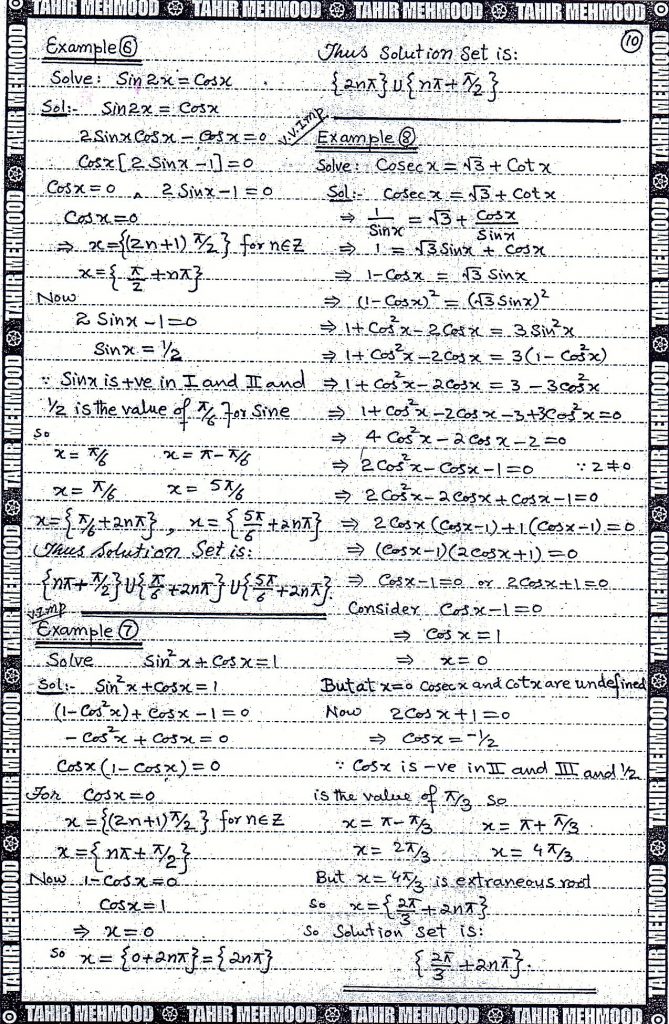 TAHIR MEHMOOD TAHIR MEHMOOD TAHIR MEHMOOD TAHIR MEHMOOD
10
Example 6
Solve: Sin2x = Cosx
Sol:- Sin2x = Cosx
2Sinx Cosx - Cosx = 0
Cosx[2 Sinx - 1] = 0
Cosx = 0 ∧ 2 Sinx - 1 = 0
Cosx = 0
⇒ x = {(2n+1) π/2} for n∈Z
x = { π/2 + nπ}
Now
2 Sinx - 1 = 0
Sinx = 1/2
∵ Sinx is +ve in I and II and
1/2 is the value of π/6 for Sine
So
x = π/6 x = π - π/6
x = π/6 x = 5π/6
x = {π/6 + 2nπ}, x = { 5π/6 + 2nπ}
Thus Solution Set is:
{nπ + π/2} U { π/6 + 2nπ} U { 5π/6 + 2nπ}.
V.Imp
Example 7
Solve Sin²x + Cosx = 1
Sol:- Sin²x + Cosx = 1
(1-Cos²x) + Cosx - 1 = 0
- Cos²x + Cosx = 0
Cosx (1 - Cosx) = 0
For Cosx = 0
x = {(2n+1)π/2} for n∈Z
x = { nπ + π/2}
Now 1 - Cosx = 0
Cosx = 1
⇒ x = 0
So x = {0+2nπ} = {2nπ}
Thus Solution Set is:
{2nπ} U {nπ + π/2}
V.V.Imp
Example 8
Solve: Cosec x = √3 + Cot x
Sol:- Cosec x = √3 + Cot x
⇒ 1/Sinx = √3 + Cosx/Sinx
⇒ 1 = √3 Sinx + Cosx
⇒ 1 - Cosx = √3 Sinx
⇒ (1 - Cosx)² = (√3 Sinx)²
⇒ 1 + Cos²x - 2Cosx = 3 Sin²x
⇒ 1 + Cos²x - 2Cosx = 3(1 - Cos²x)
⇒ 1 + Cos²x - 2Cosx = 3 - 3Cos²x
⇒ 1 + Cos²x - 2Cosx - 3 + 3Cos²x = 0
⇒ 4 Cos²x - 2Cosx - 2 = 0
⇒ 2Cos²x - Cosx - 1 = 0 ∵ 2 ≠ 0
⇒ 2Cos²x - 2Cosx + Cosx - 1 = 0
⇒ 2Cosx (Cosx-1) + 1(Cosx-1) = 0
⇒ (Cosx-1)(2Cosx+1) = 0
⇒ Cosx - 1 = 0 or 2Cosx + 1 = 0
Consider Cosx - 1 = 0
⇒ Cosx = 1
⇒ x = 0
But at x=0 Cosecx and Cotx are undefined
Now 2Cosx + 1 = 0
⇒ Cosx = -1/2
∵ Cosx is -ve in II and III and 1/2
is the value of π/3 So
x = π - π/3 x = π + π/3
x = 2π/3 x = 4π/3
But x = 4π/3 is extraneous root
So x = { 2π/3 + 2nπ}
So Solution Set is:
{ 2π/3 + 2nπ}.
TAHIR MEHMOOD TAHIR MEHMOOD TAHIR MEHMOOD TAHIR MEHMOOD